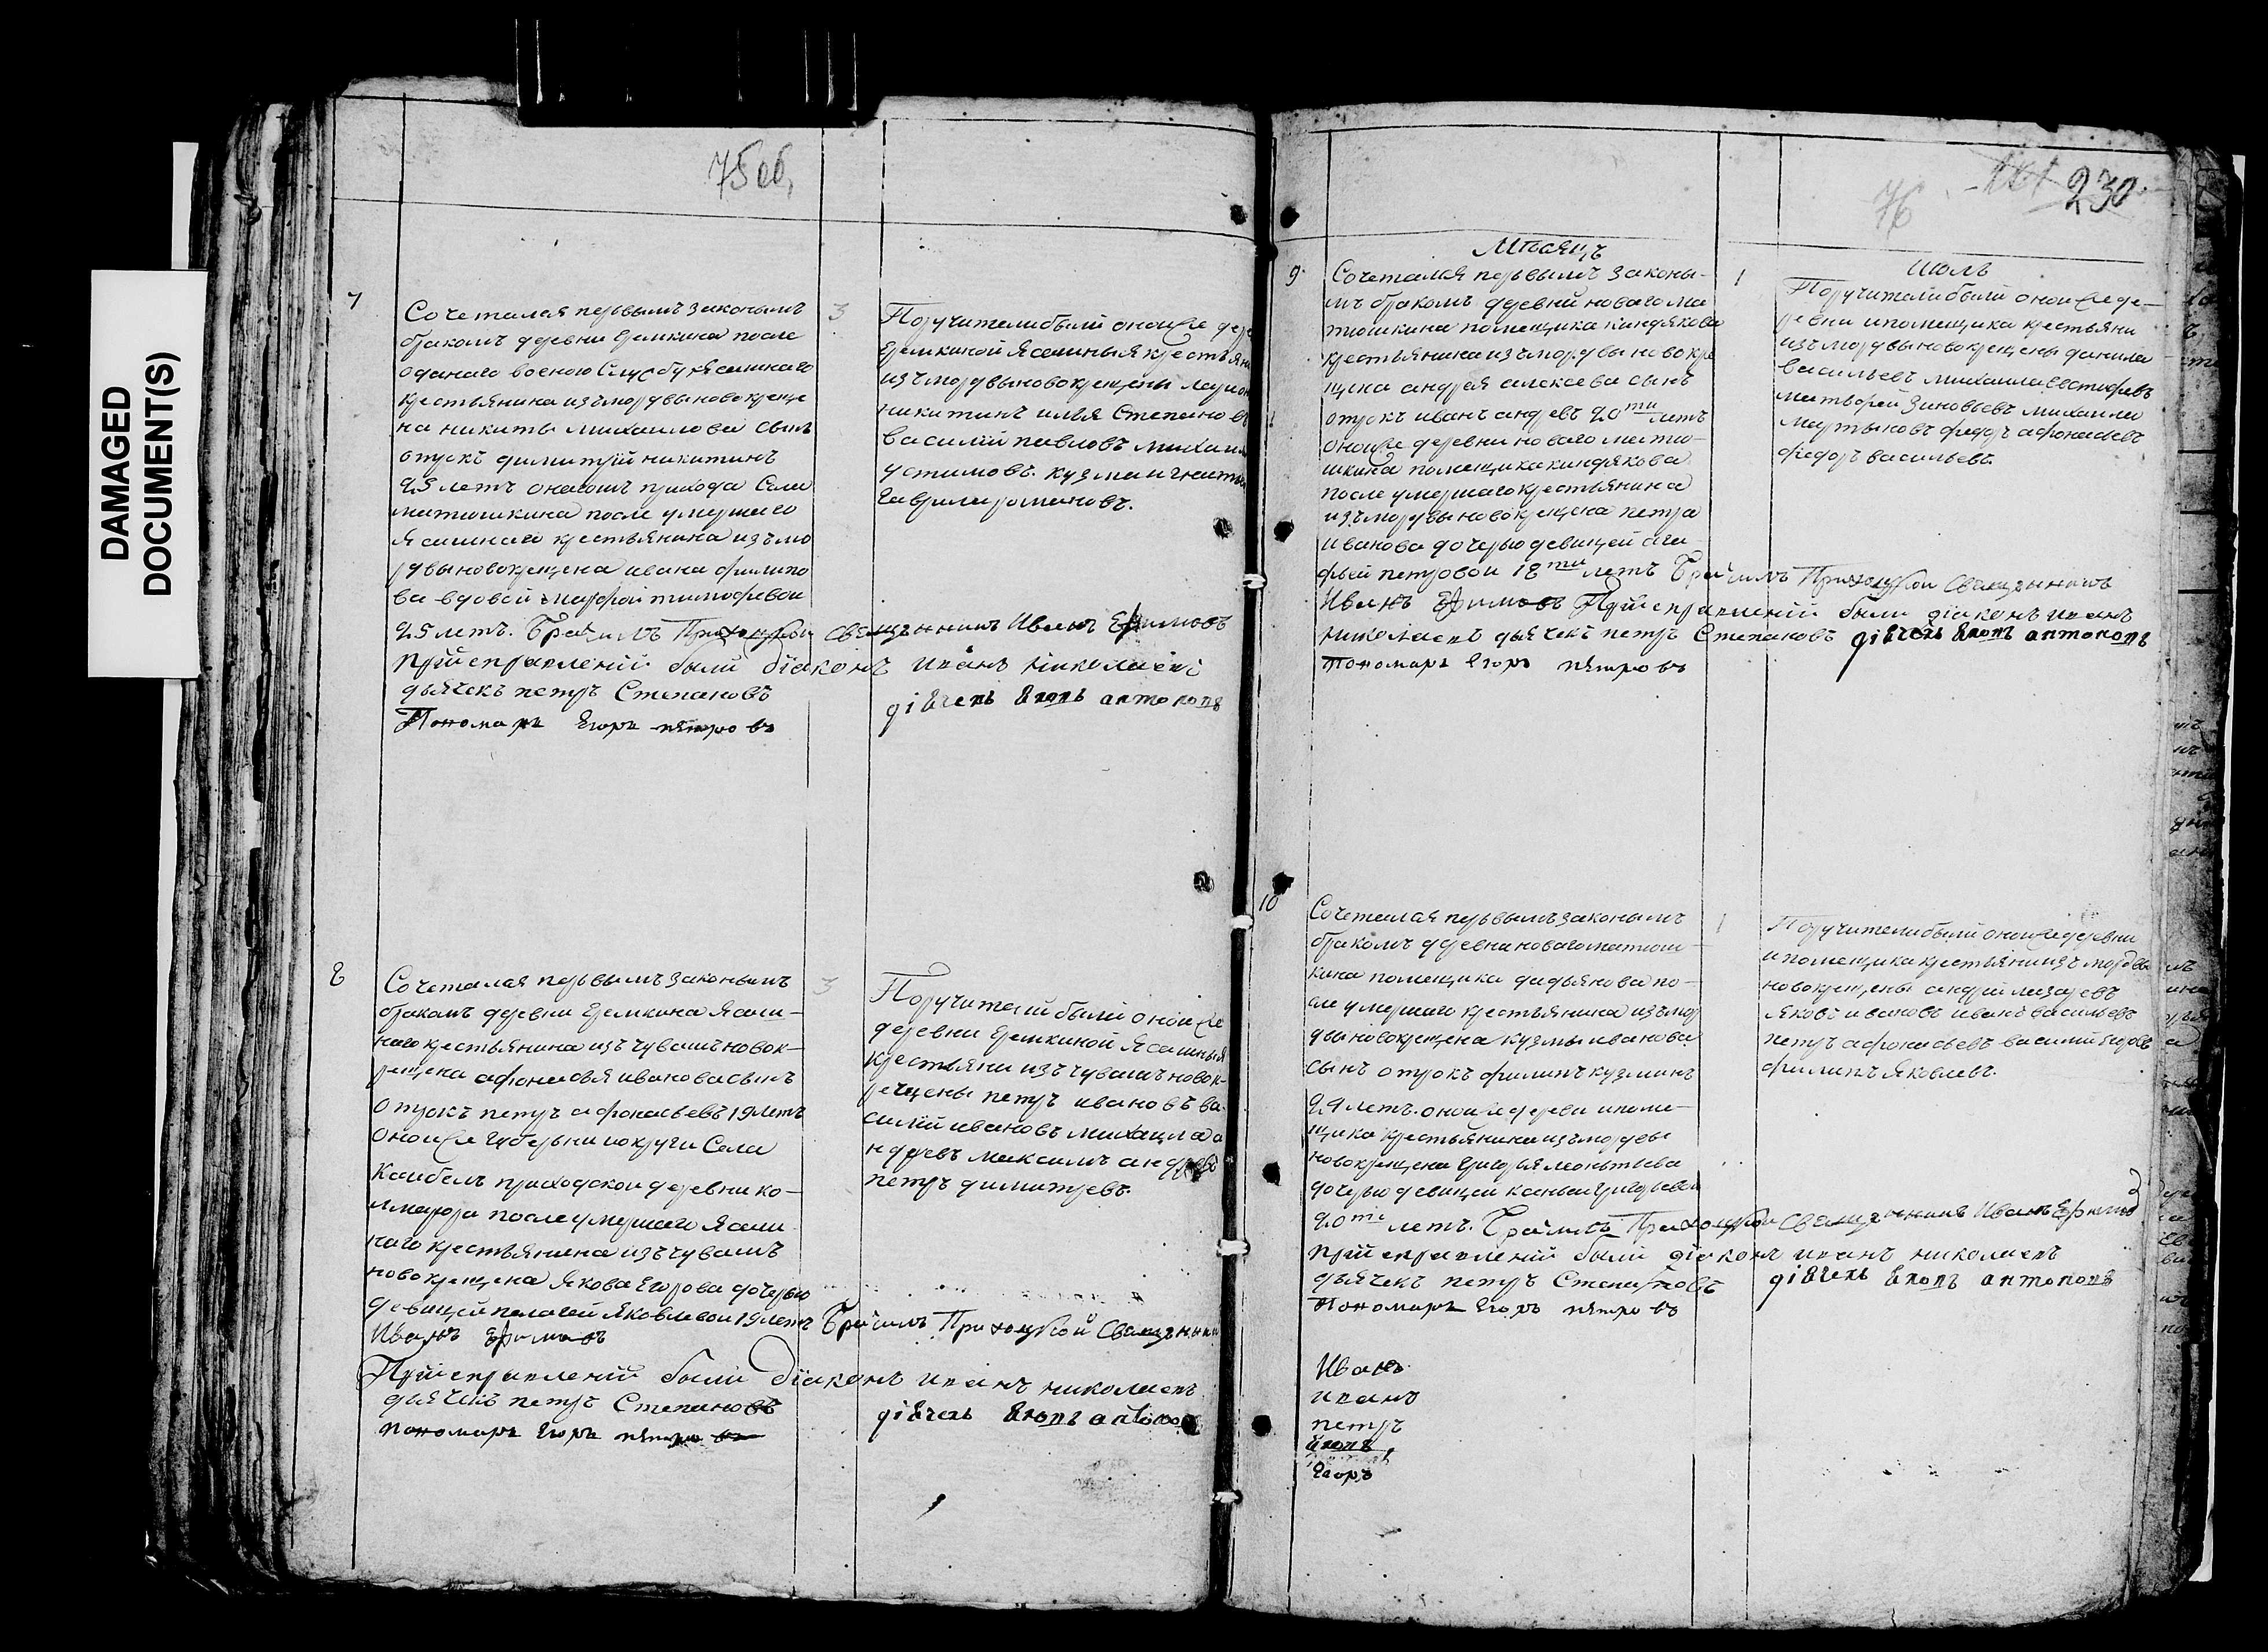 DAMAGED
DOCUMENT(S)
75 об,
7
Сочетался первымъ законымъ
бракомъ деревни Еремкина после
отданаго военою Службу ясашнаго
крестьянина изъ мордвы новокреще
на никиты михаилова сынъ
отрокъ димитрiй никитинъ
23 летъ онагожъ прихода Села
матюшкина после умершаго
ясашнаго крестьянина изъ мо
рдвы новокрещена ивана филипо
ва вдовой марфой тимофевои
25 летъ. Брачилъ Приходской Священникъ Иванъ Ефимовъ
При справленiи были дiаконъ иванъ николаевъ
дьячекъ петръ Степановъ
дiячекъ антоновъ
Пономарь Егоръ петровъ
3
Поручители были оноиже дере
Еремкиной Ясашныя крестьяни
изъ мордвы новокрещены
никитинъ илья Степановъ
василiй павловъ михаила
устимовъ. кузма игнатьи
гаврила романовъ.
8
Сочетался первымъ законымъ
бракомъ деревни Еремкина Ясаш-
наго крестьянина изъ чувашъ новок-
рещена афонасья иванова сынъ
отрокъ петръ афонасьевъ 19 летъ
оноиже губерьни иокруги Села
Каибелъ приходской деревни ко-
после умершаго Ясаш
наго крестьянина изъ чувашъ
новокрещена Якова Егорова дочерью
девицей пелагей яковлевои 19 летъ Брачилъ Приходской Священникъ
Иванъ Ефимовъ
При справленiи были дiаконъ иванъ николаевъ
дьячекъ петръ Степановъ
дiячекъ антонов
пономарь Егоръ петровъ
3
Поручители были оноиже
деревни Еремкиной Ясашныя
крестьяни изъ чувашъ новок-
рещены петръ ивановъ ва-
силiй ивановъ михаила а
ндревъ максимъ андревъ
петръ димитревъ.
76
161
230
Мъсяцъ
июль
9
Сочетался первымъ законы-
мъ бракомъ деревни новаго ма
тюшкина помещика киндякова
крестьянина изъ мордвы новокре
щена андрея алексева сынъ
отрокъ иванъ андревъ 20ти летъ
оноиже деревни новаго матю-
шкина помещика киндякова
после умершаго крестьянина
изъ мордвы новокрещена петра
иванова дочерью девицей ага-
фьей петровои 18ти летъ Брачилъ Приходской Священникъ
Иванъ Ефимовъ При справленiи были дiаконъ иванъ
николаевъ дьячекъ петръ Степановъ дiячекъ антоновъ
пономарь Егоръ петровъ
1
Поручители были оноиже де-
ревни ипомещика крестьяни
изъ мордвы новокрещены данила
васильевъ михаила
матьвей зиновьевъ михаила
мартыновъ федоръ афонасьевъ
федоръ васильевъ.
10
Сочетался первымъ законымъ
бракомъ деревни новаго матюш-
кина помещика дадьянова по-
сле умершаго крестьянина изъ мор
двы новокрещена кузмы иванова
сынъ отрокъ филипъ кузминъ
29 летъ. оноиже дереви ипоме-
щика крестьянина изъ мордвы
новокрещена григорья леонтьева
дочерью девицей ксеньей григорьевои
20ти летъ. Брачилъ Приходской Священникъ Иванъ Ефимов
При справленiи были дiаконъ иванъ николаевъ
дьячекъ петръ Степановъ
дiячекъ антоновъ
Пономарь Егоръ петровъ
1
Поручители были оноиже деревни
ипомещика крестьяни изъ мордвы
новокрещены андрей лазаревъ
Яковъ ивановъ иванъ васильевъ
петръ афонасьевъ василiй Егоровъ
филипъ Яковлевъ.
Иванъ
иванъ
петръ
Егоръ